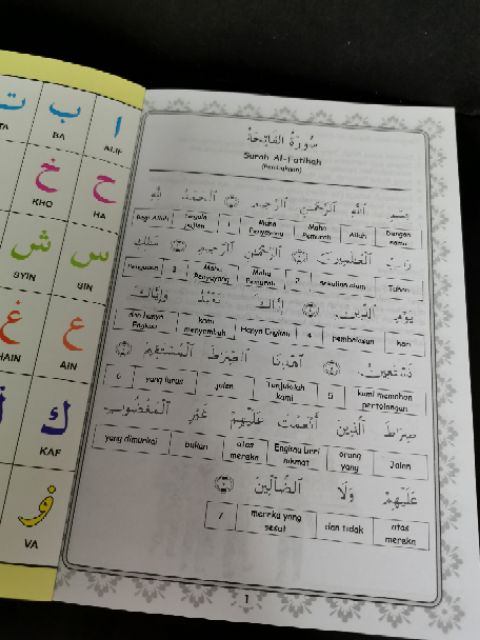 ا ب ت
ALIF BA TA
ح خ
HA KHO
س ش
SIN SYIN
ع غ
AIN HAIN
ك
KAF
VA
سُورَةُ الفَاتِحَةُ
Surah Al-Fatihah
(Pembukaan)
بِسْمِ اللَّهِ الرَّحْمَٰنِ الرَّحِيمِ ۝ الْحَمْدُ لِلَّهِ
Dengan nama Allah Maha Pemurah Maha Penyayang 1 Segala pujian Bagi Allah
رَبِّ الْعَالَمِينَ ۝ الرَّحْمَٰنِ الرَّحِيمِ ۝ مَالِكِ
Tuhan sekalian alam 2 Maha Pemurah Maha Penyayang 3 Penguasa
يَوْمِ الدِّينِ ۝ إِيَّاكَ نَعْبُدُ وَإِيَّاكَ
hari pembalasan 4 Hanya Engkau kami menyembah dan hanya Engkau
نَسْتَعِينُ ۝ اهْدِنَا الصِّرَاطَ الْمُسْتَقِيمَ ۝
kami memohon pertolongan 5 Tunjukilah kami jalan yang lurus 6
صِرَاطَ الَّذِينَ أَنْعَمْتَ عَلَيْهِمْ غَيْرِ الْمَغْضُوبِ
Jalan orang yang Engkau beri nikmat atas mereka bukan yang dimurkai
عَلَيْهِمْ وَلَا الضَّالِّينَ ۝
atas mereka dan tidak mereka yang sesat 7
1